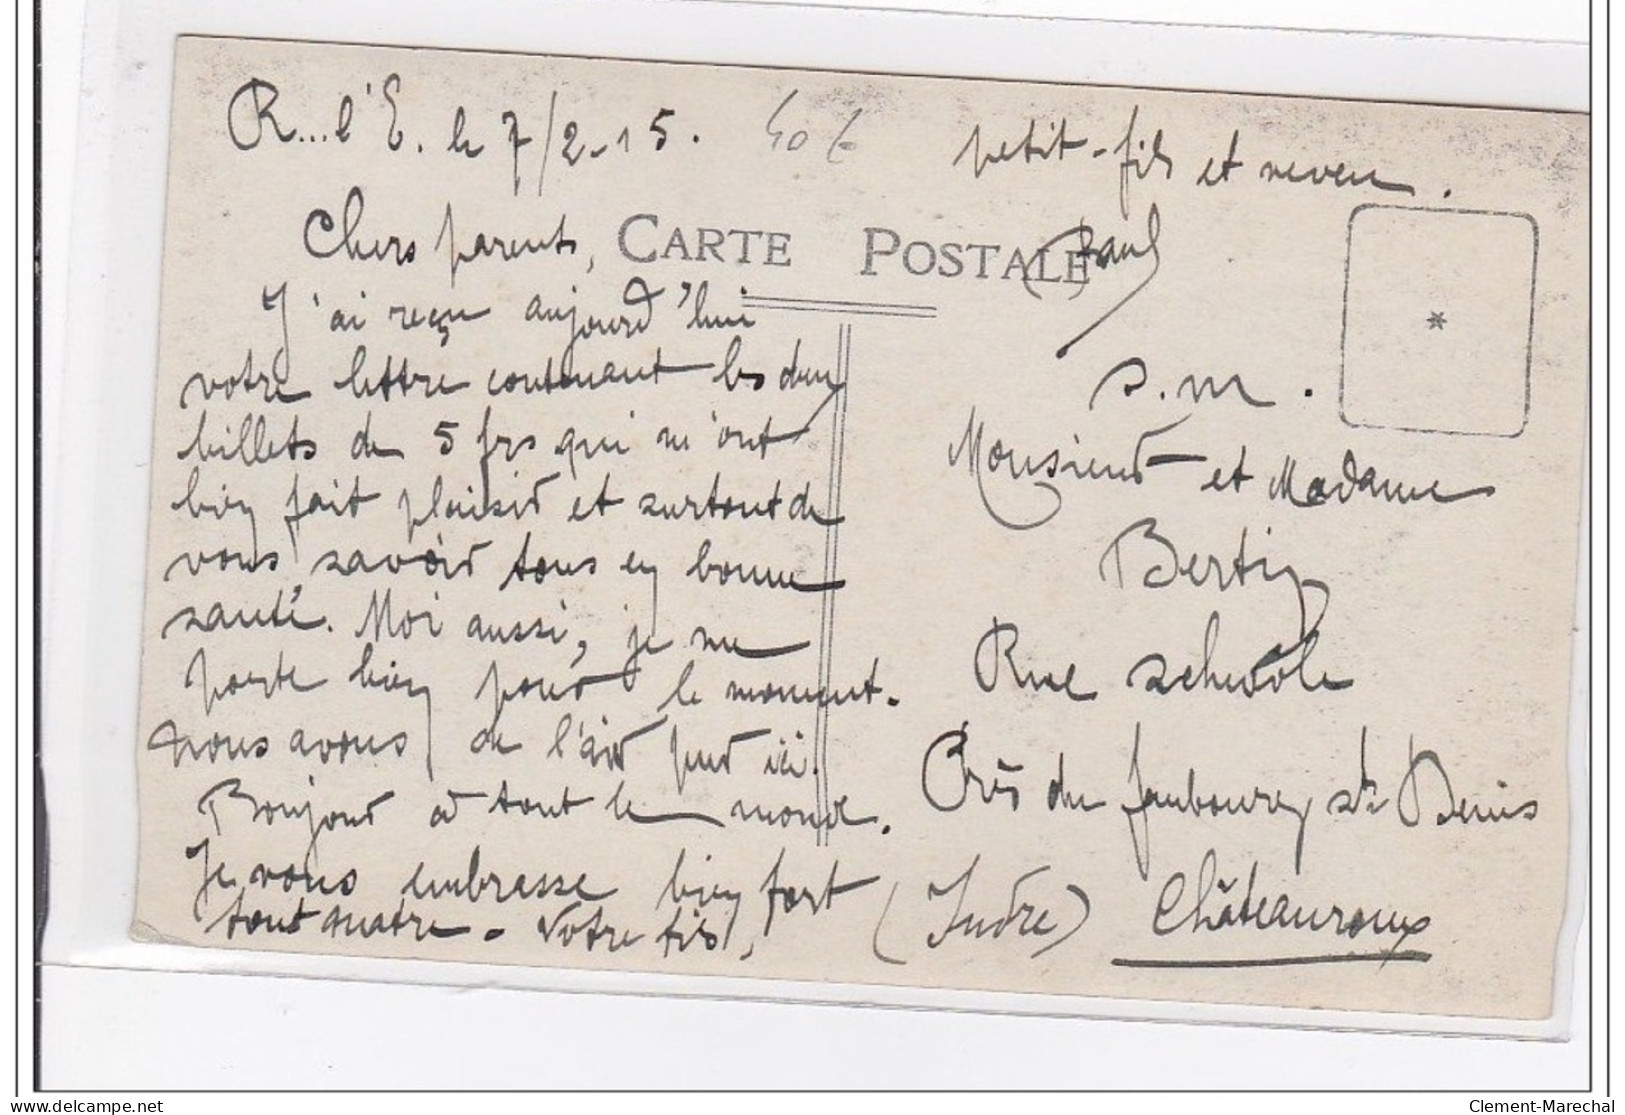 R...l'E. le 7/2-15.
40€
Chers parents,
J'ai reçu aujourd'hui
votre lettre contenant les deux
billets de 5 frs qui m'ont
bien fait plaisir et surtout de
vous savoir tous en bonne
santé. Moi aussi, je me
porte bien pour le moment.
nous avons de l'air pur ici.
Bonjour à tout le monde.
Je vous embrasse bien fort
tout quatre. Votre fils,
petit-fils et neveu.
CARTE POSTALE
Paul
S.M.
Monsieur et Madame
Bertin
Rue
Près du faubourg St Denis
(Indre) Châteauroux
delcampe.net
Clement-Marechal